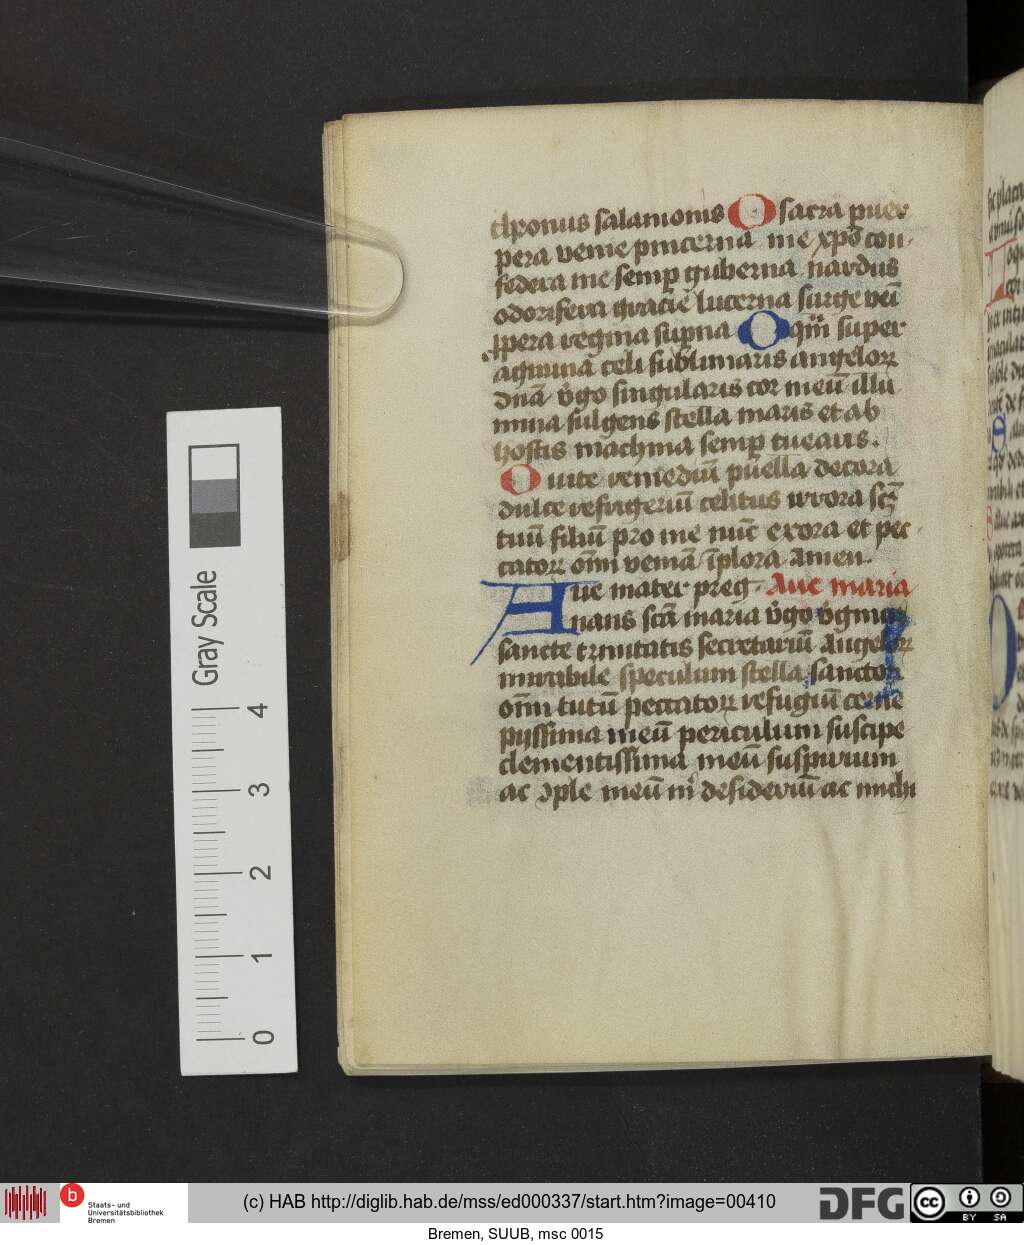 thronus salamonis O sacra puer
pera venie pincerna me xpo con
federa me semp guberna nardus
odorifera gracie lucerna surge vei
ppera regina supna O qm super
agmina celi sublimaris angelor
dna vgo singularis cor meu illu
mina fulgens stella maris et ab
hostis machina semp tuearis.
O uite remediu puella decora
dulce refugeriu celitus irrora scz
tuu filiu pro me nuc exora et pec
cator oim venia iplora Amen.
Aue mater preg. Aue maria
nans sca maria vgo vginu
sancte trinitatis secretariu Angelor
mirabile speculum stella sanctor
oim tutu peccator refugiu cerne
pijssima meu periculum suscipe
clementissima meu suspirium
ac ple meu desideriu ac michi
Gray Scale
4
3
2
1
0
b
Staats- und
Universitätsbibliothek
Bremen
(c) HAB http://diglib.hab.de/mss/ed000337/start.htm?image=00410
DFG
cc
BY SA
Bremen, SUUB, msc 0015